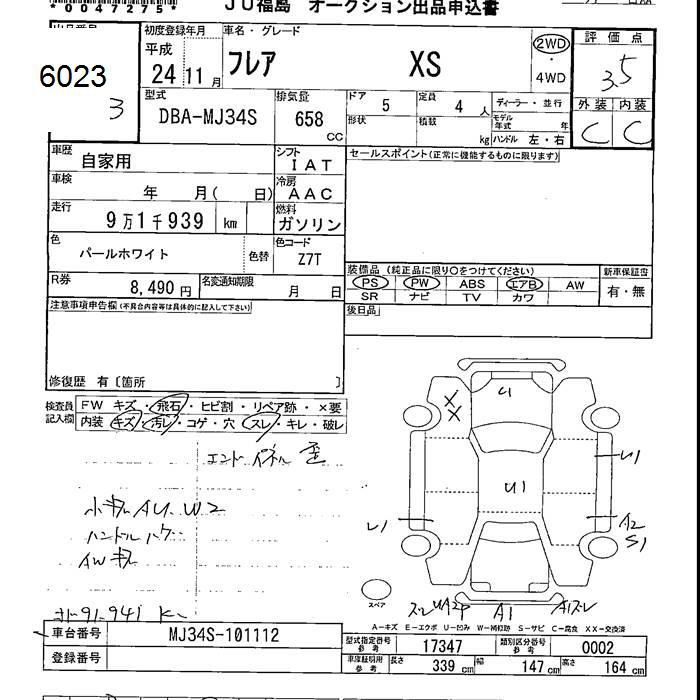 *0047275*
JU福島 オークション出品申込書
6023
3
初度登録年月
平成
24 11 月
車名・グレード
フレア XS
2WD
・
4WD
評価点
3.5
外装 内装
C C
型式
DBA-MJ34S
排気量
658
CC
ドア 5
定員 4 人
形状
積載 kg
ディーラー・並行
モデル年式 年
ハンドル 左・右
車歴
自家用
シフト
IAT
車検
年 月( 日)
冷房
AAC
走行
9万1千939 km
燃料
ガソリン
色
パールホワイト
色替
色コード
Z7T
R券
8,490 円
名変通知期限
月 日
セールスポイント(正常に機能するものに限ります)
装備品 (純正品に限り○をつけてください)
新車保証書
PS PW ABS エアB AW
有・無
SR ナビ TV カワ
後日品
注意事項申告欄(不具合内容等は具体的に記入して下さい)
修復歴 有〔箇所 〕
検査員記入欄
FW キズ・飛石・ヒビ割・リペア跡・×要
内装 キズ・汚レ・コゲ・穴・スレ・キレ・破レ
エンドパネル 歪
小キズ AU.W2
ハンドル
AWキズ
91.941
U
X
X
U1
U1
U1
A2
S1
スペア
スレ UA2P A1 A1スレ
A-キズ E-エクボ U-凹み W-補修跡 S-サビ C-腐食 XX-交換済
車台番号 MJ34S-101112
登録番号
型式指定番号 参考 17347
類別区分番号 参考 0002
車庫証明用 参考 長さ 339 cm 幅 147 cm 高さ 164 cm